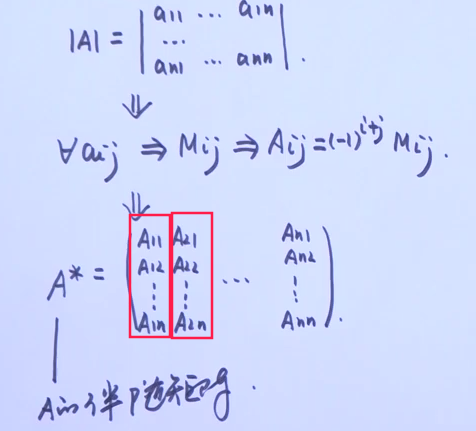 |A| = | a11 ... a1n |
| ... |
| an1 ... ann | .
⇓
∀ aij ⇒ Mij ⇒ Aij = (-1)^{i+j} Mij .
⇓
A* = ( A11 A21 ... An1 )
( A12 A22 An2 )
( ⋮ ⋮ ⋮ )
( A1n A2n Ann ) .
A的伴随矩阵 .